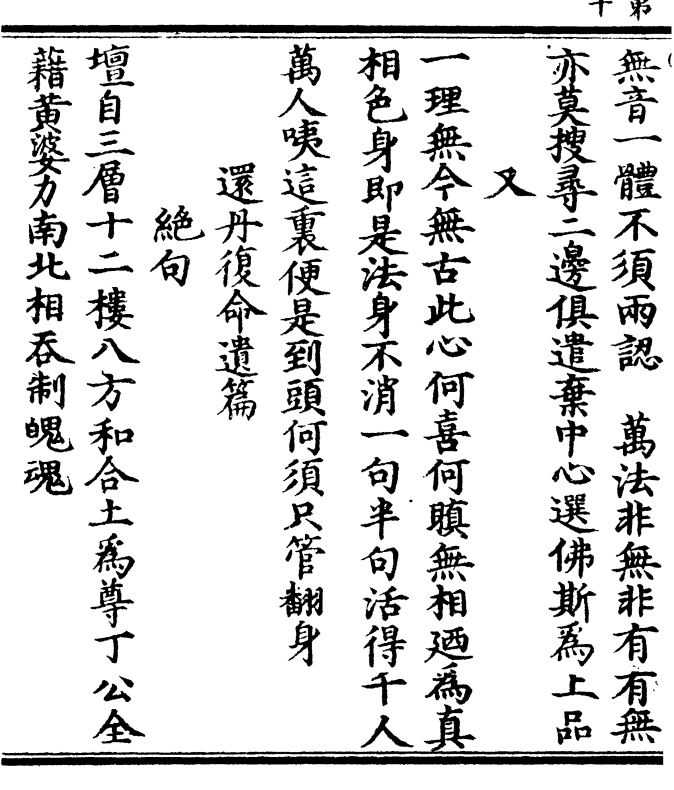 無音一體不須兩認　萬法非無非有有無
亦莫搜尋二邊俱遣棄中心選佛斯爲上品
又
一理無今無古此心何喜何瞋無相廼爲真
相色身即是法身不消一句半句活得千人
萬人咦這裏便是到頭何須只管翻身
還丹復命遺篇
絶句
壇自三層十二樓八方和合土爲尊丁公全
藉黃婆力南北相吞制魄魂